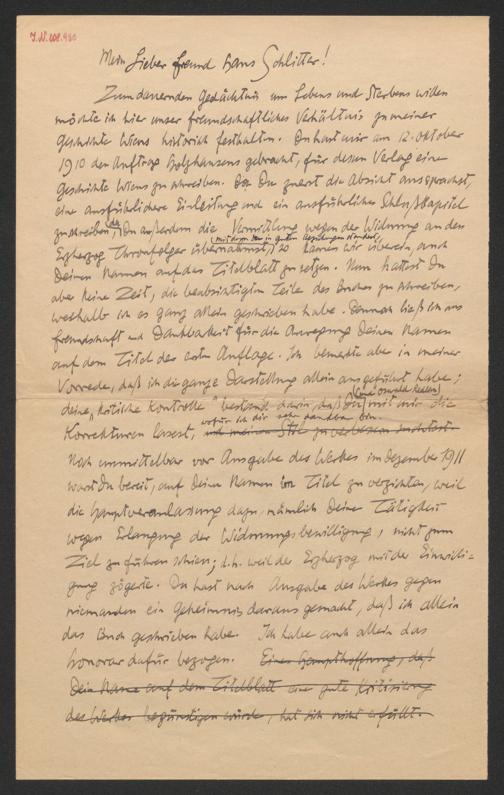 J.N. 108.980
Mein lieber Freund Hans Schlitter!
Zum dauernden Gedächtnis um Lebens und Sterbens willen
möchte ich hier unser freundschaftliches Verhältnis zu meiner
Geschichte Wiens historisch festhalten. Du hast mir am 12. Oktober
1910 den Auftrag Holzhausens gebracht, für dessen Verlag eine
Geschichte Wiens zu schreiben. Da Du zuerst die Absicht aussprachst,
eine ausführlichere Einleitung und ein ausführliches Schlußkapitel
zu schreiben, da Du außerdem die Vermittlung wegen der Widmung an den
Erzherzog Thronfolger übernahmst, mit dem Du in guten Beziehungen standest, so kamen wir überein, auch
Deinen Namen auf das Titelblatt zu setzen. Nun hattest Du
aber keine Zeit, die beabsichtigten Teile des Buches zu schreiben,
weshalb ich es ganz allein geschrieben habe. Dennoch ließ ich aus
Freundschaft und Dankbarkeit für die Anregung Deinen Namen
auf dem Titel der ersten Auflage. Ich bemerkte aber in meiner
Vorrede, daß ich die ganze Darstellung allein ausgeführt habe;
deine "kritische Kontrolle" bestand darin, daß Du mit mir die
Korrekturen lasest, wofür ich dir sehr dankbar bin. und meinen Stil zu verbessern suchtest.
Noch unmittelbar vor Ausgabe des Werkes im Dezember 1911
warst Du bereit, auf Deine Namen im Titel zu verzichten, weil
die Hauptveranlassung dazu, nämlich Deine Tätigkeit
wegen Erlangung der Widmungsbewilligung, nicht zum
Ziel zu führen schien; d.h. weil der Erzherzog mit der Einwilli-
gung zögerte. Du hast nach Ausgabe des Werkes gegen
niemanden ein Geheimnis daraus gemacht, daß ich allein
das Buch geschrieben habe. Ich habe auch allein das
Honorar dafür bezogen. Eine Haupthoffnung, daß
Dein Name auf dem Titelblatt eine gute Kritisierung
des Werkes begünstigen würde, hat sich nicht erfüllt.